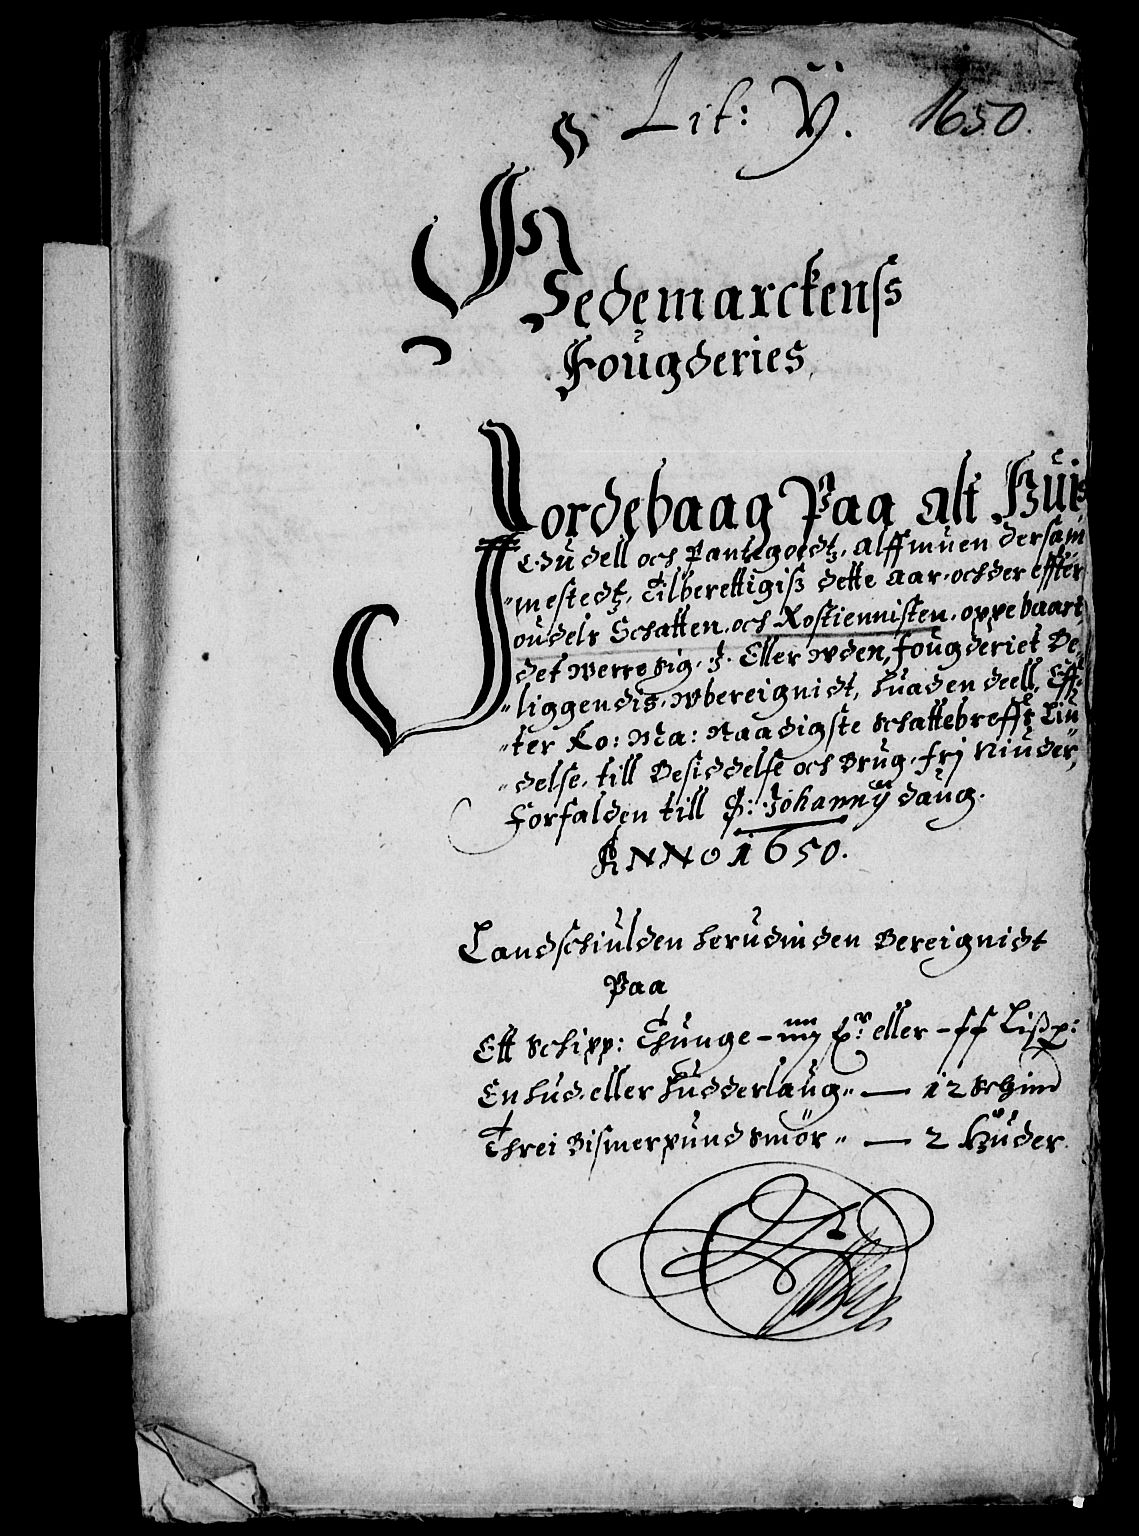 Lit: Y. 1650.
Hedemarckenss
Fougderies
Jordebaag Paa alt Huis
Oudell och Pantegoedtz, alffmuen dersam
"mestedtz, Tilberettigiss dette aar, och der effter
oudels Schatten, och Rostiennisten, oppebaart,
det werre sig, J. Eller wden, fougderiet Be,
"liggendis, wbereignidt, huad en deell, Eff,
"ter Ko: Ma: Naadigste Schattebreffs Liu
"delse, till Besiddelse och Brug, frj Niuder,
Forfalden till S: Johannÿ daug.
ANNO 1650.
Landschiulden herudinden Bereignidt
Paa
Ett Schipp: Thunge - eller - Lissp:
En hud, eller hudderlaug " — 12 Schind
Threi Bismerpund Smör " — 2 Huder.